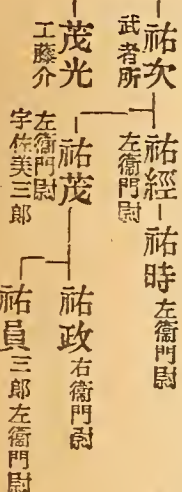 祐次
武者所
祐經
左衞門尉
祐時
左衞門尉
茂光
工藤介
祐茂
左衞門尉
宇佐美三郎
祐政
右衞門尉
祐員
三郎左衞門尉